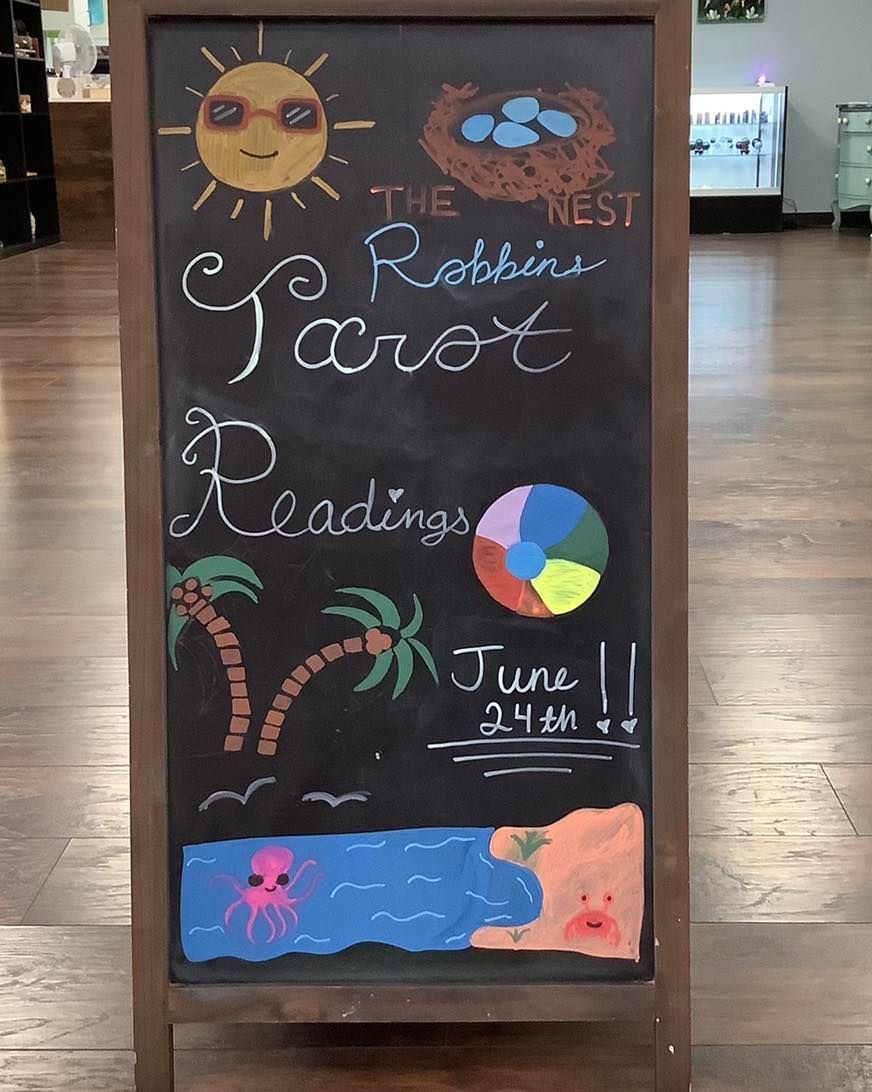 THE NEST
Robbins
Tarot
Readings
June !!
24th